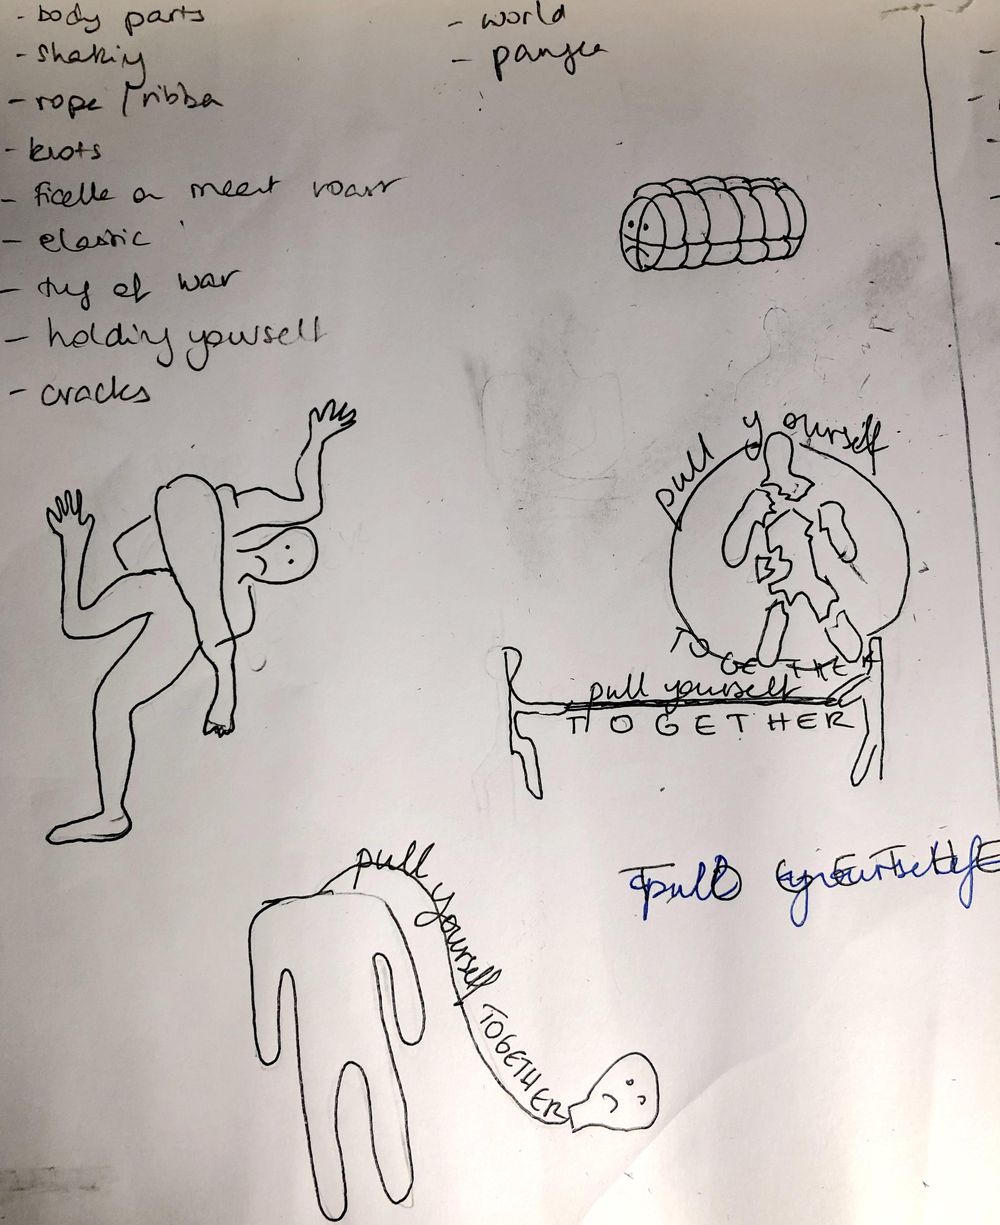 - body parts
- shaking
- rope / ribbon
- knots
- ficelle on meat roast
- elastic
- tug of war
- holding yourself
- cracks
- world
- pangea
pull yourself
TOGETHER
pull yourself
TOGETHER
pull yourself TOGETHER
pull yourself
TOGETHE